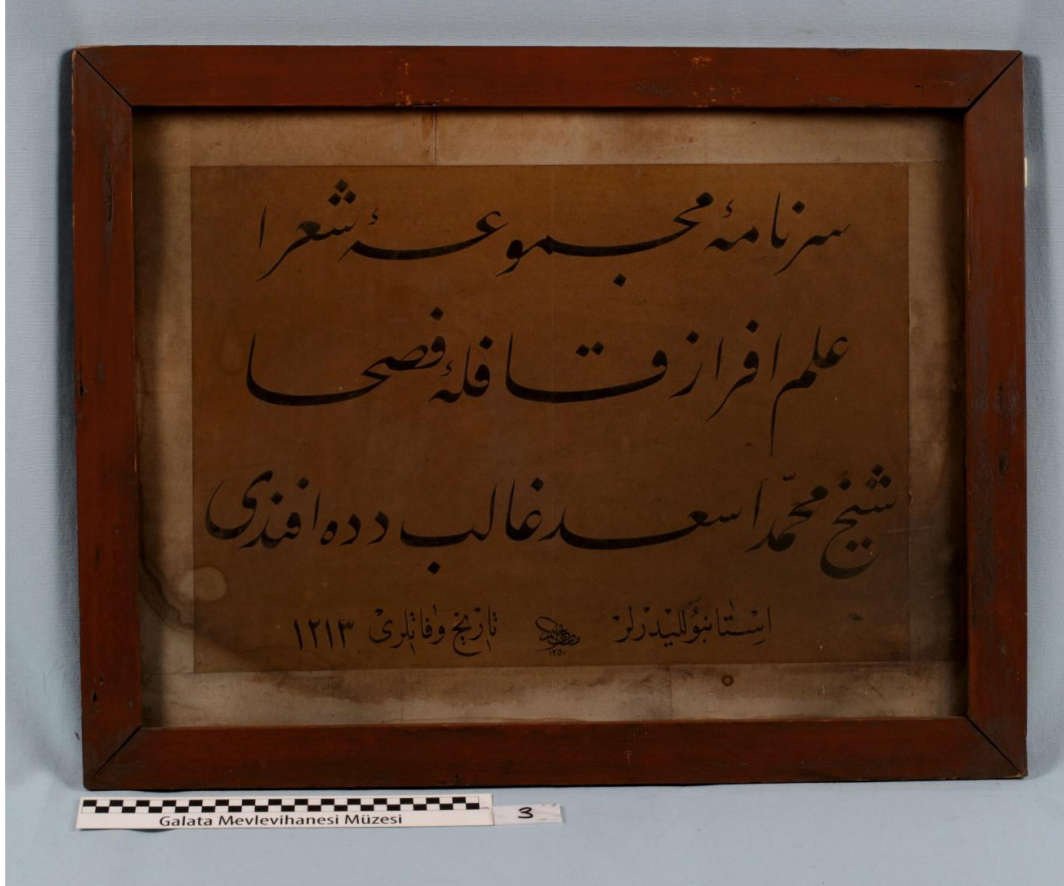 سرنامۀ مجموعۀ شعرا
علم افراز قافلۀ فصحا
شيخ محمّد اسعد غالب دده افندى
اِسْتانبُوللّيدْرلرْ تارْيخ وَفاتلرىْ ١٢١٣
١٢٥٠
Galata Mevlevihanesi Müzesi 3